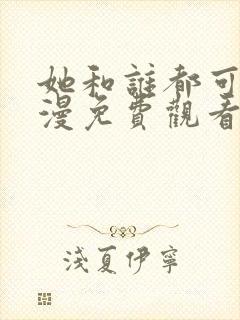 她和誰都可
漫免費觀看
淺夏伊寧